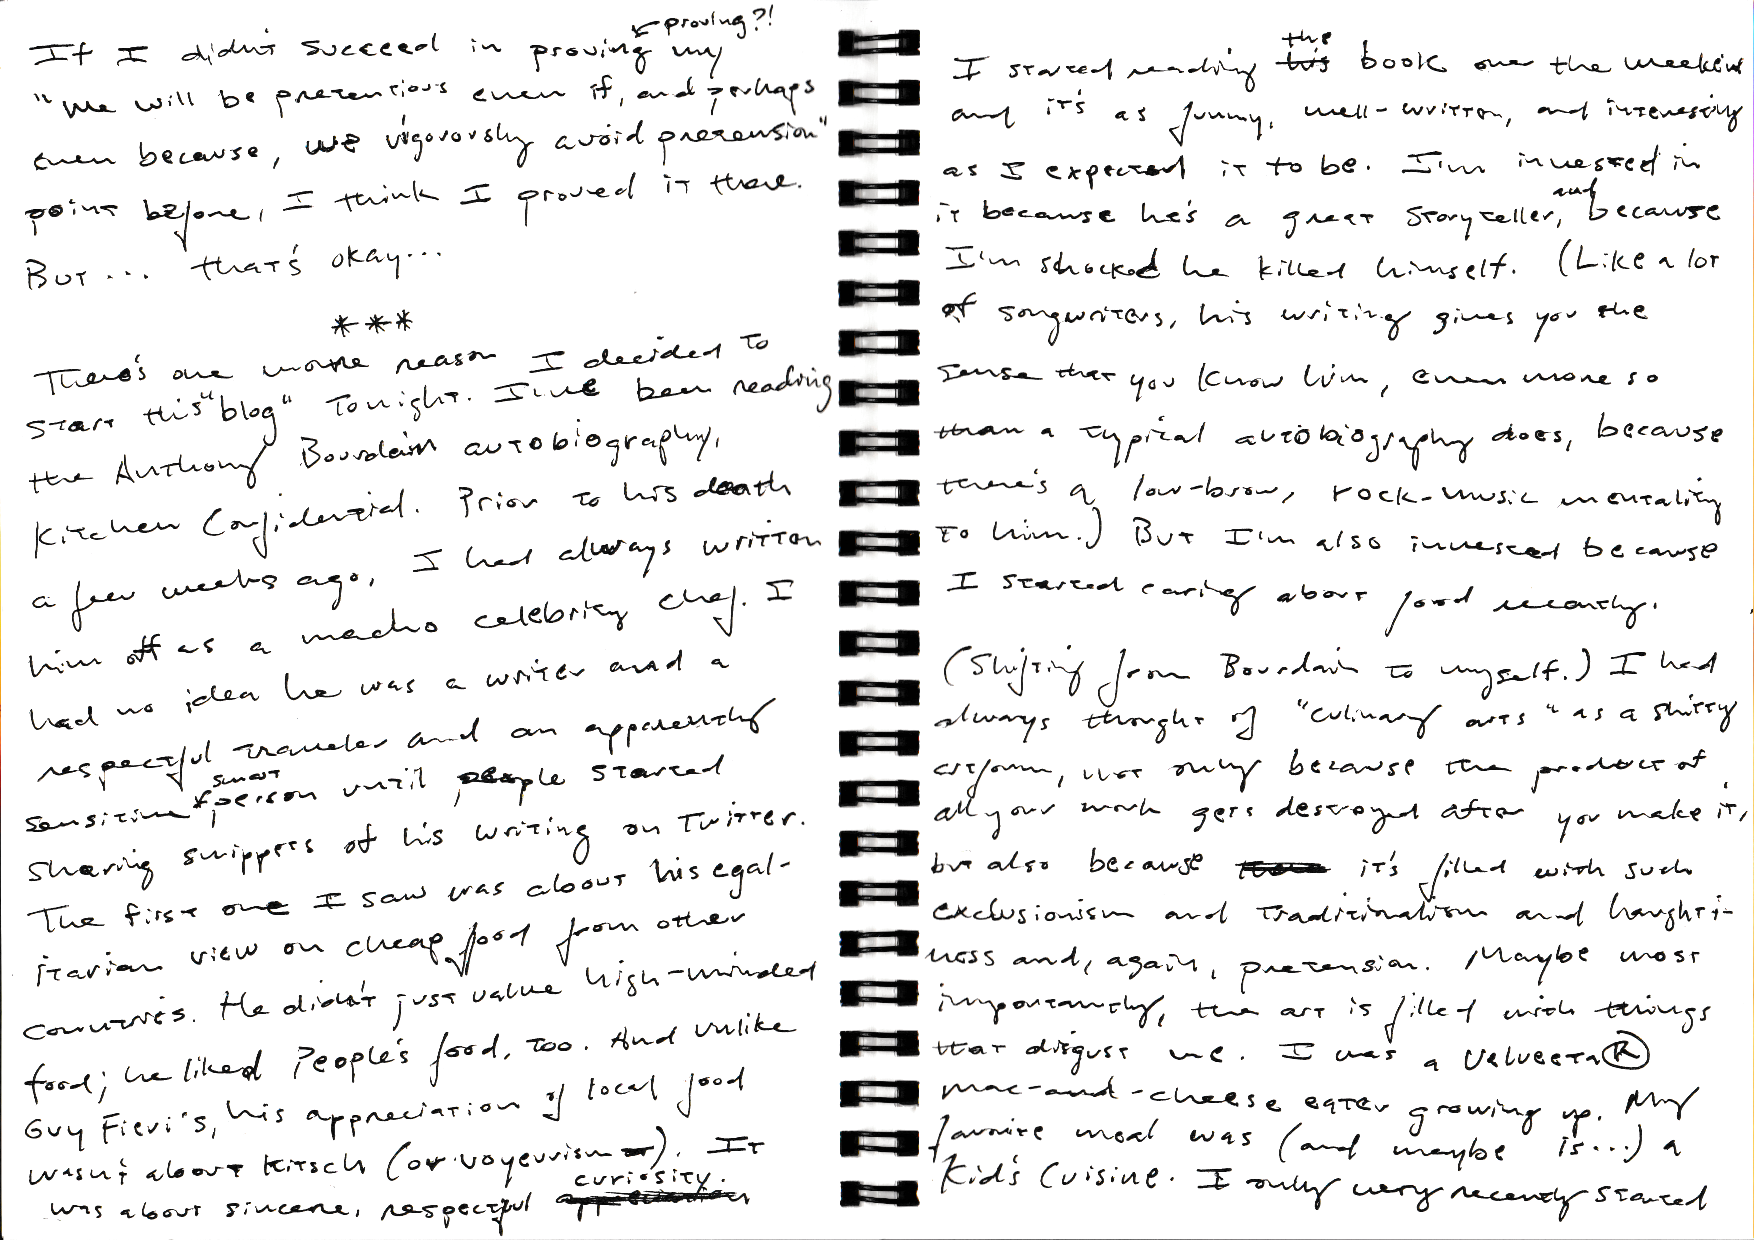 proving?!
If I didn't succeed in proving my
"we will be pretentious even if, and perhaps
even because, we vigorously avoid pretension"
point before, I think I proved it there.
But... that's okay...
***
There's one more reason I decided to
start this "blog" tonight. I've been reading
the Anthony Bourdain autobiography,
Kitchen Confidential. Prior to his death
a few weeks ago, I had always written
him off as a macho celebrity chef. I
had no idea he was a writer and a
respectful traveler and an apparently
smart
sensitive person until people started
sharing snippets of his writing on Twitter.
The first one I saw was about his egal-
itarian view on cheap food from other
countries. He didn't just value high-minded
food; he liked People's food, too. And unlike
Guy Fieri's, his appreciation of local food
wasn't about kitsch (or voyeurism). It
curiosity.
was about sincere, respectful
the
I started reading his book over the weekend
and it's as funny, well-written, and interesting
as I expected it to be. I'm invested in
and
it because he's a great storyteller, because
I'm shocked he killed himself. (Like a lot
of songwriters, his writing gives you the
sense that you know him, even more so
than a typical autobiography does, because
there's a low-brow, rock-music mentality
to him.) But I'm also invested because
I started caring about food recently.
(Shifting from Bourdain to myself.) I had
always thought of "culinary arts" as a shitty
artform, not only because the product of
all your work gets destroyed after you make it,
but also because it's filled with such
exclusionism and traditionalism and haughti-
ness and, again, pretension. Maybe most
importantly, the art is filled with things
that disgust me. I was a Velveeta®
mac-and-cheese eater growing up. My
favorite meal was (and maybe is...) a
Kid's Cuisine. I only very recently started